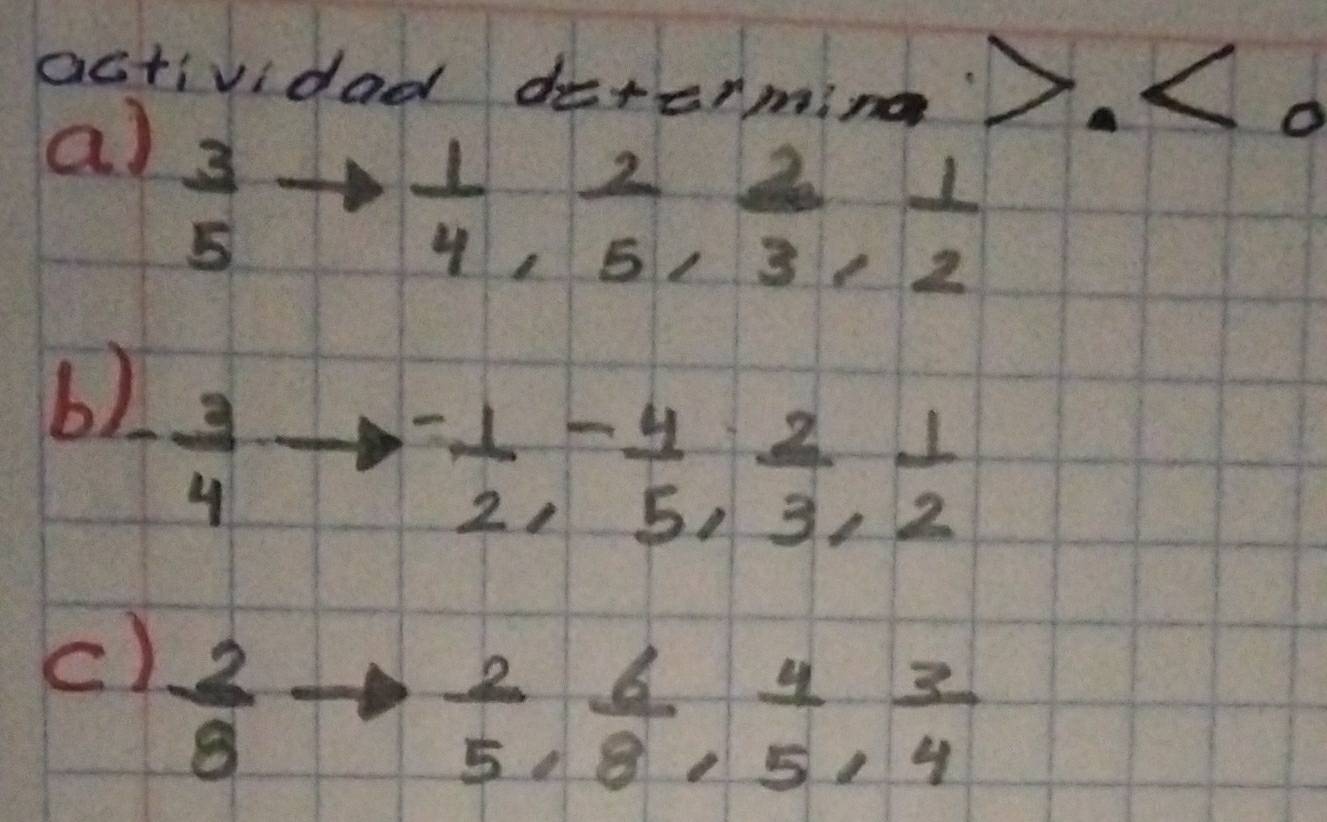 actividad determina >. < o
a) 3/5 → 1/4, 2/5, 2/3, 1/2
b) -3/4 → -1/2, -4/5, 2/3, 1/2
c) 2/8 → 2/5, 6/8, 4/5, 3/4